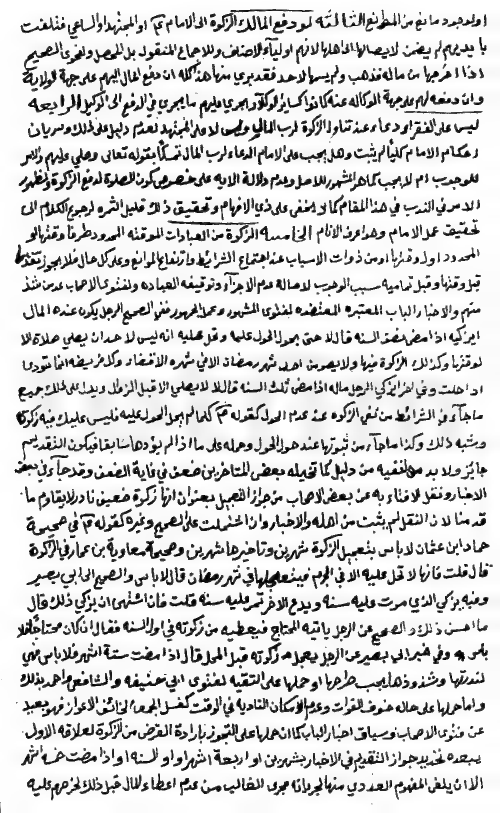 او لوجود مانع من المطرابع الثالثة لو دفع المالك الزكوة الى الامام ع او المجتهد او الساعي فتلفت
بايديهم لم يضمن لايصالها الى اهلها لانهم اولياء الاصناف وللاجماع المنقول بل المحصل ولفحوى الصحيح
اذا اخرجها من ماله فذهب ولم يسمها لاحد فقد برئ منها هذا كله ان دفع المال اليهم على جهة الولاية
وان دفعه لهم على جهة الوكالة عنه كانوا كسائر الوكلاء يجرى عليهم ما يجرى في الدفع الى الوكيل الرابعة
ليس على الفقراء دعاء عند تناول الزكوة لرب المال وليس لا على المجتهد لعدم دليل على ذلك وسريان
احكام الامام كليا لم يثبت وهل يجب على الامام الدعاء لرب المال تمسكا بقوله تعالى وصلي عليهم والامر
للوجوب ام لا يجب كما هو المشهور للاصل ولعدم دلالة الاية على خصوص كون الصلوة لدفع الزكوة ولظهور
الامر في الندب في هذا المقام كما لا يخفى على ذي الافهام وتحقيق ذلك قليل الثمره لرجوع الكلام الى
تحقيق عمل الامام وهو اعرف الانام الخامسة الزكوة من العبادات الموقته المحدود طرفا وقتها او
المحدود اول وقتها او من ذوات الاسباب عند اجتماع الشرائط وارتفاع الموانع وعلى كل حال فلا يجوز تقديمها
قبل وقتها وقبل تمامية سبب الوجوب لاصالة عدم الاجزاء وتوقيفه العباده ولفتوى الاصحاب عدى من شذ
منهم والاخبار الباب المعتبره المعتضده بفتوى المشهور وعمل الجمهور ففي الصحيح الرجل يكون عنده المال
ايزكيه اذا مضى نصف السنه قال لا حتى يحول الحول عليه وتحل عليه انه ليس لاحد ان يصلي صلاة الا
لوقتها وكذلك الزكوة فيها ولا يصومن احد شهر رمضان الا في شهره الا قضاء وكل فريضه انما تؤدى
اذا حلت وفي اخر ايزكي الرجل ماله اذا مضى ثلث السنه قال لا ايصلي الاولى قبل الزوال ويدل على ذلك جميع
ما جاء في الشرائط من نفي الزكوه عند عدم الحول كقوله ع كلما لم يحل الحول عليه فليس عليك فيه زكوة
وشبه ذلك وكذا ما جاء من ثبوتها عند حول الحول وحمله على ما اذا لم يؤدها سابقا فيكون التقديم
جائز ولا بد من نفيه من دليل كما تخيله بعض المتاخرين ضعف في غاية الضعف وقد جاء في بعض
الاخبار ونقل الافتاء به عن بعض الاصحاب من جواز التعجيل بعنوان انها زكوة ضعيف نادر لا يقاوم ما
قدمنا لان النقل لم يثبت من اهله والاخبار وان اشتملت على الصحيح وغيره كقوله ع في صحيحة
حماد ابن عثمان لا باس بتعجيل الزكوة شهرين وتاخيرها شهرين وصحيحة معاوية بن عمار في الزكوة
قال قلت فانها لا تحل عليه الا في المحرم فيعجلها في شهر رمضان قال لا باس والصحيح الى ابي بصير
وفيه يزكي الذي مرت عليه سنه ويدع الاخر تمر عليه سنه قلت فان اشتهى ان يزكي ذلك قال
ما احسن ذلك والصحيح عن الرجل ياتيه المحتاج فيعطيه من زكوته في اول السنه فقال ان كان محتاجا فلا
باس وفي خبر ابي بصير عن الرجل يعجل زكوته قبل المحل قال اذا مضت ستة اشهر فلا باس فهي
لندرتها وشذوذها يجب طرحها او حملها على التقيه لفتوى ابي حنيفه والشافعي واحمد بذلك
واما حملها على حاله خوف الفوات وعدم امكان التاديه في الوقت كغسل الجمعه لخائف الاعواز فهو بعيد
عن فتوى الاصحاب وسياق اخبار الباب كما ان حملها على التجوز بارادة القرض من الزكوة لعلاقه الاول
يبعده تحديد جواز التقديم في الاخبار بشهرين او اربعة اشهر او اول السنه او اذا مضت خمسه اشهر
الا ان يلغى المفهوم العددي منها لجريانه مجرى الغالب من عدم اعطاء المال قبل ذلك لحرصهم عليه